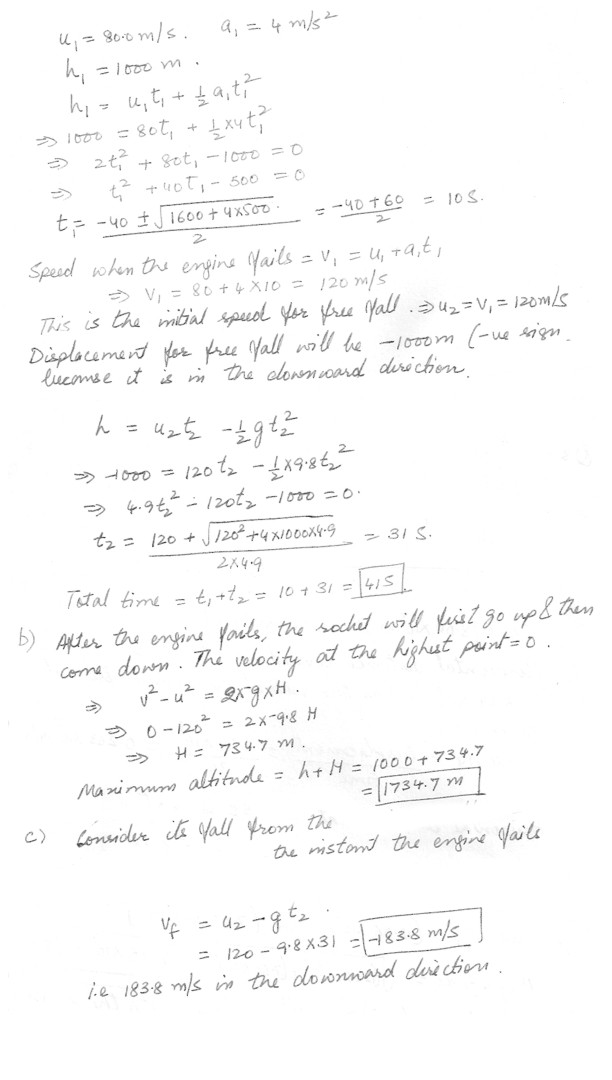 u₁ = 80.0 m/s. a₁ = 4 m/s²
h₁ = 1000 m.
h₁ = u₁t₁ + ½a₁t₁²
⇒ 1000 = 80t₁ + ½×4t₁²
⇒ 2t₁² + 80t₁ - 1000 = 0
⇒ t₁² + 40t₁ - 500 = 0
t₁ = (-40 ± √(1600 + 4×500))/2 = (-40 + 60)/2 = 10 s.
Speed when the engine fails = v₁ = u₁ + a₁t₁
⇒ v₁ = 80 + 4×10 = 120 m/s
This is the initial speed for free fall. ⇒ u₂ = v₁ = 120 m/s
Displacement for free fall will be -1000m (-ve sign
because it is in the downward direction.
h = u₂t₂ - ½gt₂²
⇒ -1000 = 120t₂ - ½×9.8t₂²
⇒ 4.9t₂² - 120t₂ - 1000 = 0.
t₂ = (120 + √(120² + 4×1000×4.9))/(2×4.9) = 31 s.
Total time = t₁ + t₂ = 10 + 31 = 41 s
b) After the engine fails, the rocket will first go up & then
come down. The velocity at the highest point = 0.
⇒ v² - u² = 2×g×H.
⇒ 0 - 120² = 2×-9.8 H
⇒ H = 734.7 m.
Maximum altitude = h + H = 1000 + 734.7
= 1734.7 m
c) Consider its fall from the
the instant the engine fails
v_f = u₂ - gt₂.
= 120 - 9.8×31 = -183.8 m/s
i.e 183.8 m/s in the downward direction.